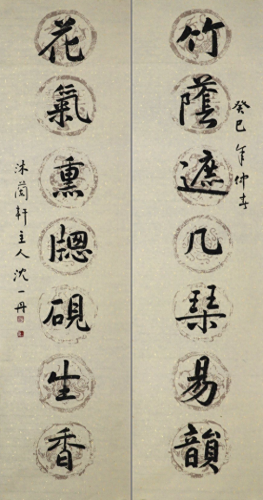 竹蔭遮几琹易韻
癸巳年仲春
花氣熏牕硯生香
沐蘭軒主人沈一丹